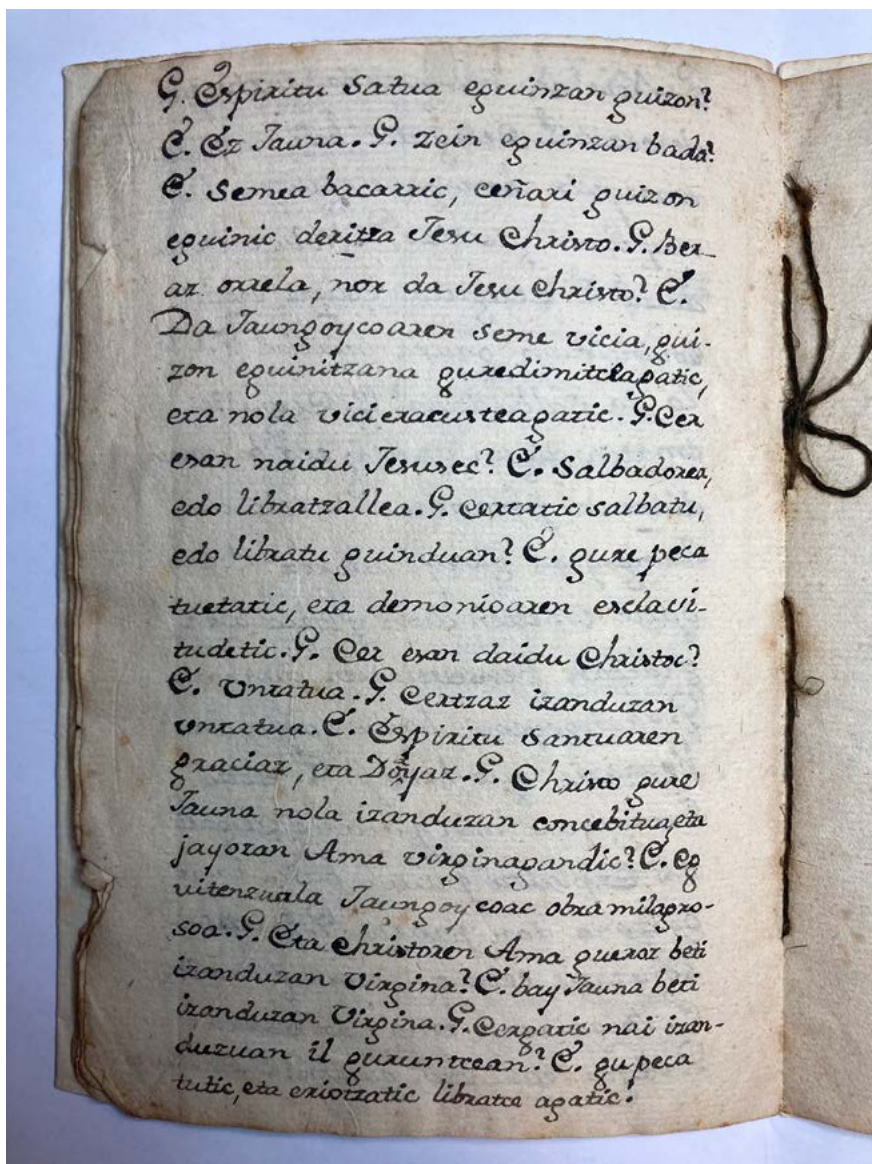 G. Espiritu Satua eguinzan guizon?
E. Ez Jauna. G. Zein eguinzan bada?
E. Semea bacarric, ceñari guizon
eguinic deritza Jesu Christo. G. Ber-
az orrela, nor da Jesu Christo? E.
Da Jaungoycoaren seme vicia, gui-
zon eguinitzana guredimitceagatic,
eta nola vicieracusteagatic. G. Cer
esan naidu Jesusec? E. Salbadorea,
edo libratzallea. G. Certatic salbatu,
edo libratu guinduan? E. gure peca
tuetatic, eta demonioaren esclavi-
tudetic. G. Cer esan daidu Christoc?
E. Untatua. G. Certzaz izanduzan
untatua. E. Espiritu Santuaren
graciaz, eta Doyaz. G. Christo gure
Jauna nola izanduzan concebitua, eta
jayozan Ama virginagandic? E. eg
uitenzuala Jaungoycoac obra milagro-
soa. G. Eta Christoren Ama gueroz beti
izanduzan virgina? E. bay Jauna beti
izanduzan Virgina. G. Cergatic nai izan-
duzuan il guruntcean? E. gu peca
tutic, eta eriotzatic libratce agatic.